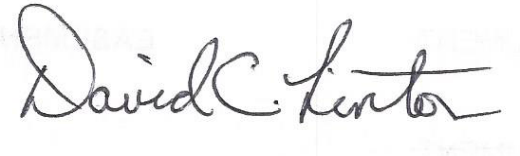 David C. Linton